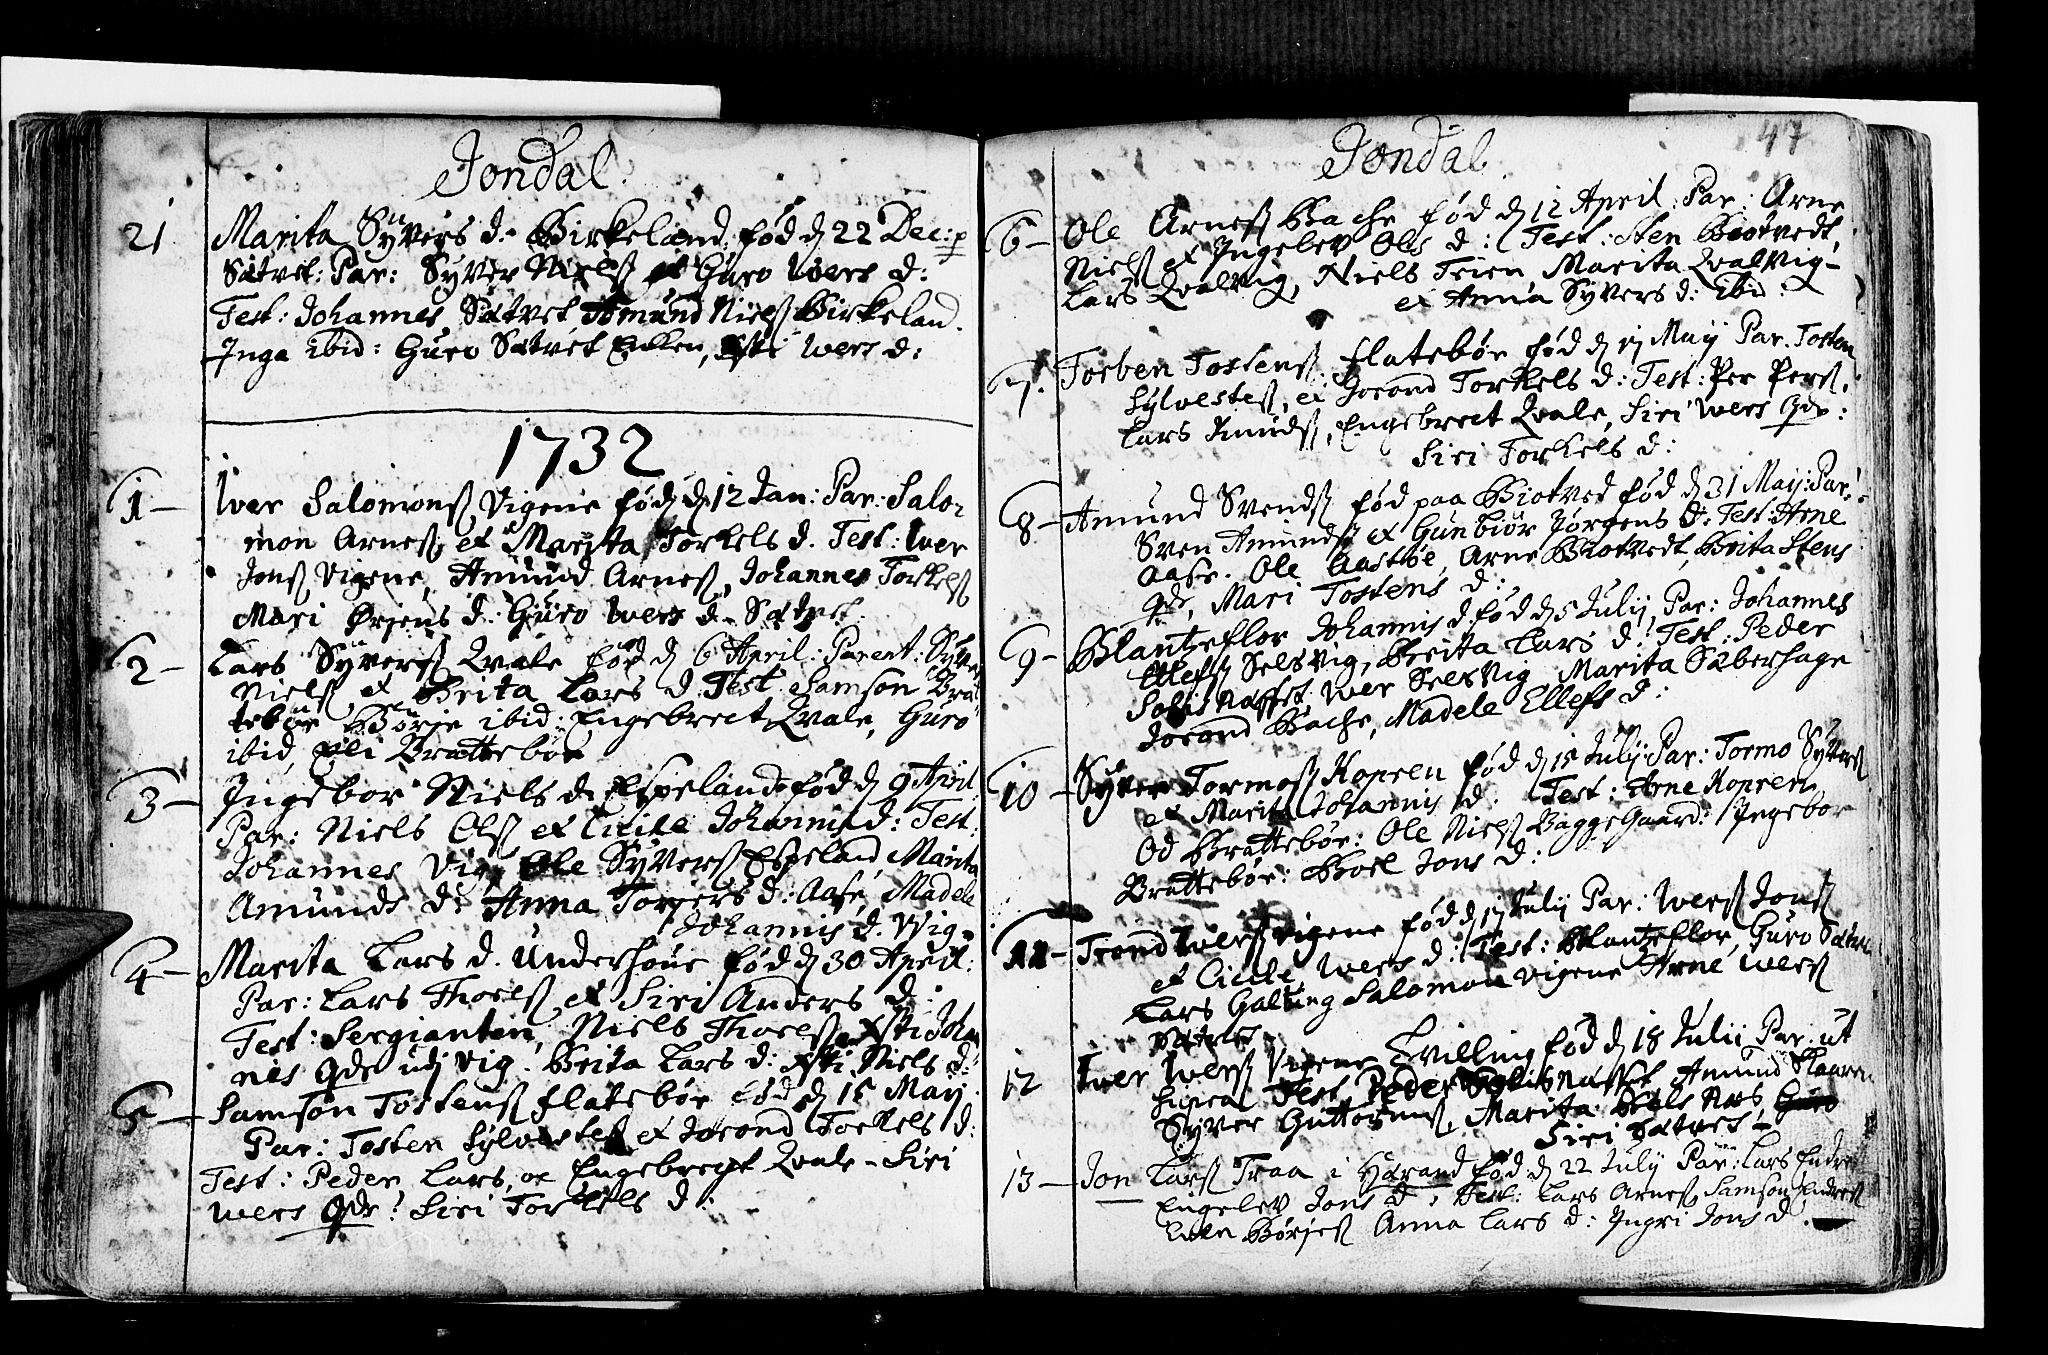 Jondal.
21 Marita Syvers d. Birkeland fød d 22 Dec:
Sætvet: Par: Syver Niels et Guro Ivers d:
Test: Johannes Sætvet Amund Niels Birkeland.
Inga ibid: Guro Sætvet Enken, Ivers d:
1732
1 - Iver Salomons Vigene fød d 12 Jan: Par: Salo-
mon Arnes, et Marita Torkels d. Test: Iver
Jons Vigene, Amund Arnes, Johannes Torkels
Mari Ørjens d: Guro Ivers d - Sætvet
2 - Lars Syvers Qvale fød d 6 April: Parent: Syver
Niels, et Brita Lars d. Test. Samson Brat
tebør Børje ibid: Engebreet Qvale, Guro
ibid, Brattebør
3 - Ingebor Niels d. Espeland fød d 9 April
Par: Niels Ols et Johannis d: Test:
Johannes Vig, Ole Syvers Espeland Marita
Amunds d: Anna Torgers d: Aase, Madele
Johannis d. Vig -
4 - Marita Lars d. Underhoue fød d 30 April:
Par: Lars Thores et Siri Anders d:
Test: Sergianten, Niels Thores Johan
nis Qde udj Vig. Brita Lars d: Niels d:
5 - Samson Tostens flatebør fød d 15 Maij
Par: Tosten Sylvestes et Jorond Torkels d:
Test: Peder Lars, oc Engebregt Qvale - Siri
Ivers Qde: Siri Torkels d:
47
Jondal.
6 - Ole Arnes Bache fød d 12 April: Par: Arne
Niels et Ingelev Ols d: Test: Sten Biotvedt,
Lars Qvalvig, Niels Trien Marita Qvalvig -
et Anna Syvers d: ibid:
7. Torben Tostens. flatebør fød d Maij Par. Tosten
Sylvestes, et Jorond Torkels d: Test: Per Pers,
Lars Amunds, Engebreet Qvale, Siri Ivers Qde:
Siri Torkels d:
8 - Amund Svends fød paa Biotved fød d 31 Maij: Par:
Sven Amunds et Gunbiør Jørgens d: Test: Arne
Aase. Ole Arne Biotvedt, Brita Stens
Qde, Mari Tostens d:
9 - Blantzeflor Johannis d fød d 5 Julij, Par: Johannes
Ellefs Selsvig, Brita Lars d: Test: Peder
Iver Selsvig Marita Sæberhage
Jorand Bache, Madele Ellefs d:
10 - Syver Tormos Kopren fød d 15 Julij Par: Tormo Syvers
et Marita Johannis d: Test: Arne Kopren
Od Brattebør: Ole Niels Baggegaard: Ingebor
Brattebør: Boel Jons d:
11 - Trond Ivers Vigene fød d Julij Par: Ivers Jons
et Ivers d: Test: Blantzeflor, Guro
Lars Galtung Salomon Vigene Arne Ivers
Sætvet -
12 Iver Ivers Vigene Tvilling fød d 18 Julii Par: ut
supra Test: Peder Amund
Syver Guttorms, Marita
Siri Sætvet -
13 - Jon Lars Traa i fød d 22 Julij Par: Lars Endres
Engelev Jons d: Test: Lars Arnes Samson Endres
Børjes Anna Lars d: Ingri Jons d.